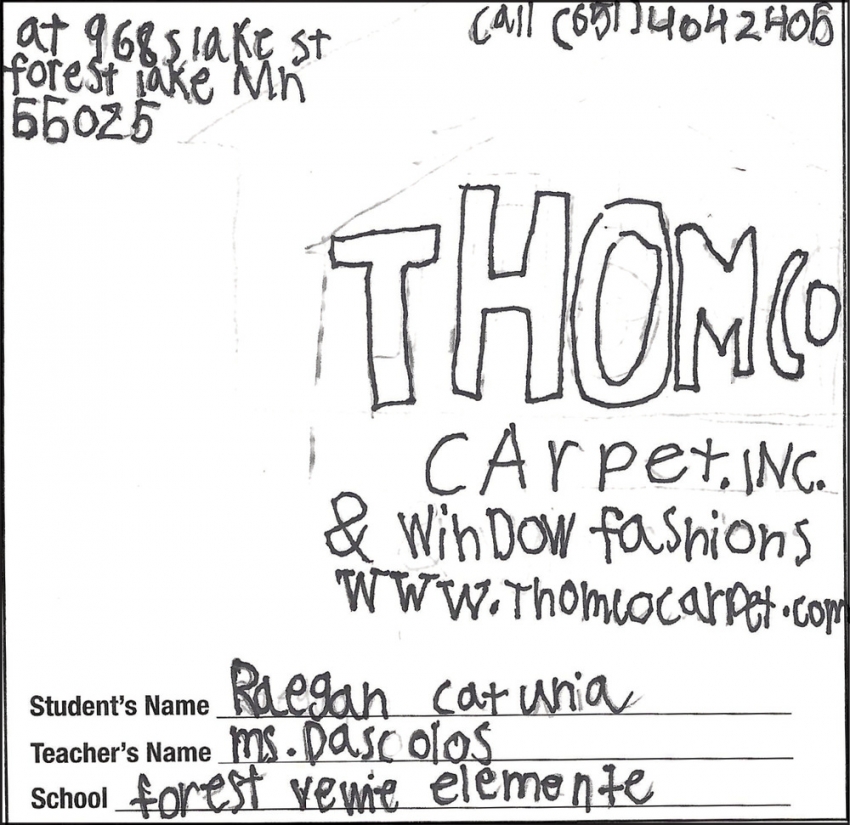 at 968 s lake st
forest lake Mn
55025
Call (651) 4042405
THOMCO
CArpet. INC.
& WinDow fashions
WWW.Thomcocarpet.com
Student's Name Raegan catunia
Teacher's Name ms. Dascolos
School forest vewie elemente